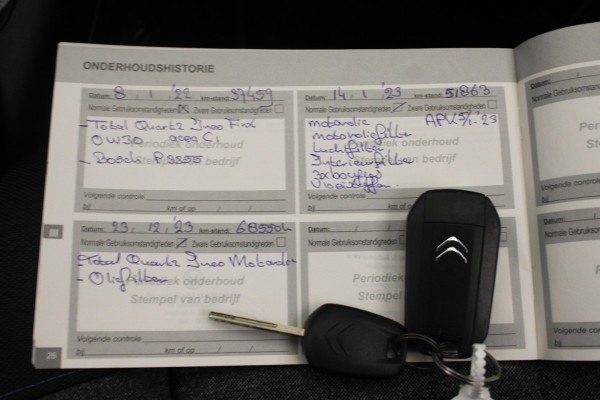 ONDERHOUDSHISTORIE
Datum: 8 / 1 / '22 km-stand: 37459
Normale Gebruiksomstandigheden Zware Gebruiksomstandigheden
- Total Quartz Ineo First
0W30 acea C1
- Bosch P
Periodiek onderhoud
Stempel van bedrijf
Volgende controle
bij km of op / /
Datum: 14 / 1 / '23 km-stand: 51863
Normale Gebruiksomstandigheden Zware Gebruiksomstandigheden
motorolie APK 5/1-'23
motoroliefilter
Luchtfilter
Interieurfilter
Vloeistoffen
Volgende controle
bij km of op / /
Datum: 23 / 12 / '23 km-stand: 68550
Normale Gebruiksomstandigheden Zware Gebruiksomstandigheden
- Total Quartz Ineo Motorolie
- Oliefilter
Periodiek onderhoud
Stempel van bedrijf
Volgende controle
bij km of op / /
Datum: / / km-stand:
Normale Gebruiksomstandigheden Zware Gebruiksomstandigheden
Periodiek
Stempel
Datum:
Normale Gebruiksomst
Volgende controle
bij
Datum:
Normale Gebruiksoms
Volgende controle
bij
26